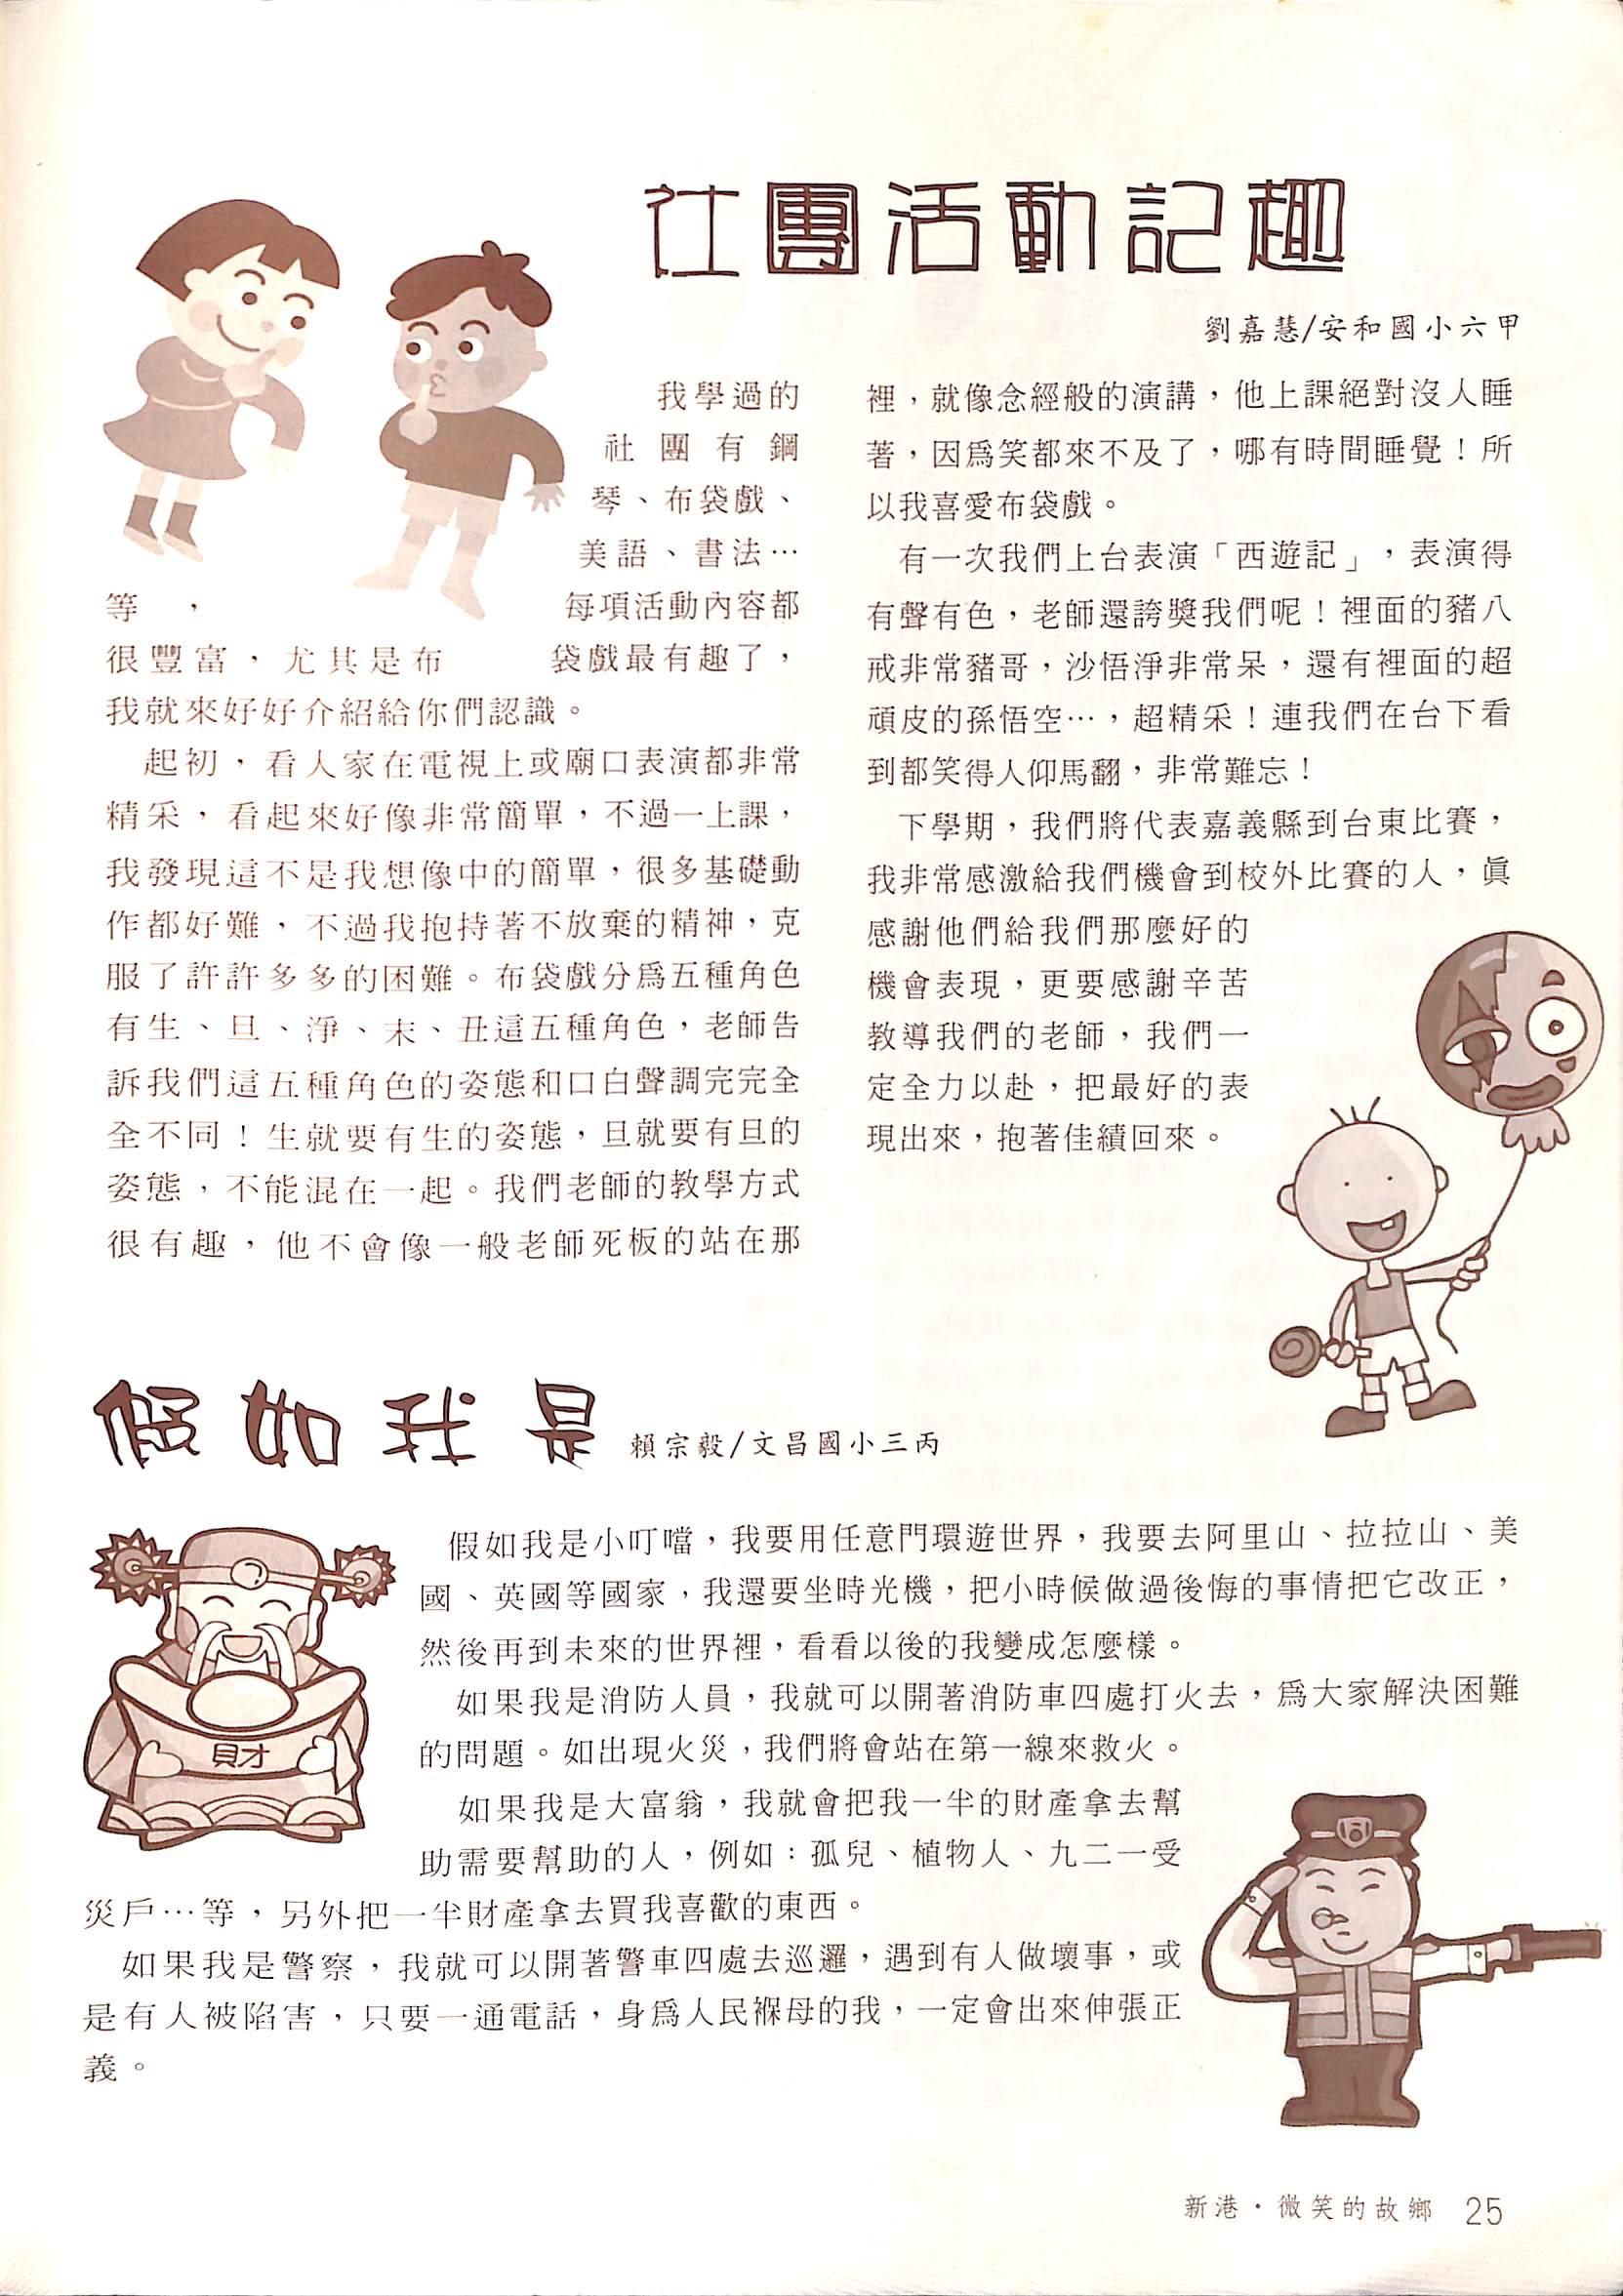 社團活動記趣
劉嘉慧/安和國小六甲
我學過的
社團有鋼
琴、布袋戲、
美語、書法…
等，每項活動內容都
很豐富，尤其是布袋戲最有趣了，
我就來好好介紹給你們認識。
起初，看人家在電視上或廟口表演都非常
精采，看起來好像非常簡單，不過一上課，
我發現這不是我想像中的簡單，很多基礎動
作都好難，不過我抱持著不放棄的精神，克
服了許許多多的困難。布袋戲分為五種角色
有生、旦、淨、末、丑這五種角色，老師告
訴我們這五種角色的姿態和口白聲調完完全
全不同！生就要有生的姿態，旦就要有旦的
姿態，不能混在一起。我們老師的教學方式
很有趣，他不會像一般老師死板的站在那
裡，就像念經般的演講，他上課絕對沒人睡
著，因為笑都來不及了，哪有時間睡覺！所
以我喜愛布袋戲。
有一次我們上台表演「西遊記」，表演得
有聲有色，老師還誇獎我們呢！裡面的豬八
戒非常豬哥，沙悟淨非常呆，還有裡面的超
頑皮的孫悟空…，超精采！連我們在台下看
到都笑得人仰馬翻，非常難忘！
下學期，我們將代表嘉義縣到台東比賽，
我非常感激給我們機會到校外比賽的人，真
感謝他們給我們那麼好的
機會表現，更要感謝辛苦
教導我們的老師，我們一
定全力以赴，把最好的表
現出來，抱著佳績回來。
假如我是
賴宗毅/文昌國小三丙
假如我是小叮噹，我要用任意門環遊世界，我要去阿里山、拉拉山、美
國、英國等國家，我還要坐時光機，把小時候做過後悔的事情把它改正，
然後再到未來的世界裡，看看以後的我變成怎麼樣。
如果我是消防人員，我就可以開著消防車四處打火去，為大家解決困難
的問題。如出現火災，我們將會站在第一線來救火。
如果我是大富翁，我就會把我一半的財產拿去幫
助需要幫助的人，例如：孤兒、植物人、九二一受
災戶…等，另外把一半財產拿去買我喜歡的東西。
如果我是警察，我就可以開著警車四處去巡邏，遇到有人做壞事，或
是有人被陷害，只要一通電話，身為人民褓母的我，一定會出來伸張正
義。
財
新港・微笑的故鄉 25